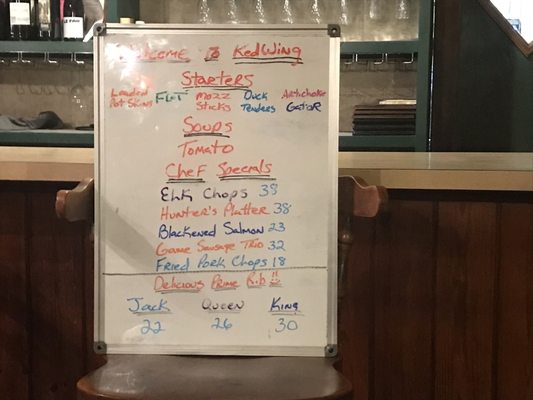 Welcome to RedWing
Starters
Loaded Pot Skins FGT Mozz Sticks Duck Tenders Artichoke Gator
Soups
Tomato
Chef Specials
Elk Chops 38
Hunter's Platter 38
Blackened Salmon 23
Game Sausage Trio 32
Fried Pork Chops 18
Delicious Prime Rib !!
Jack Queen King
22 26 30